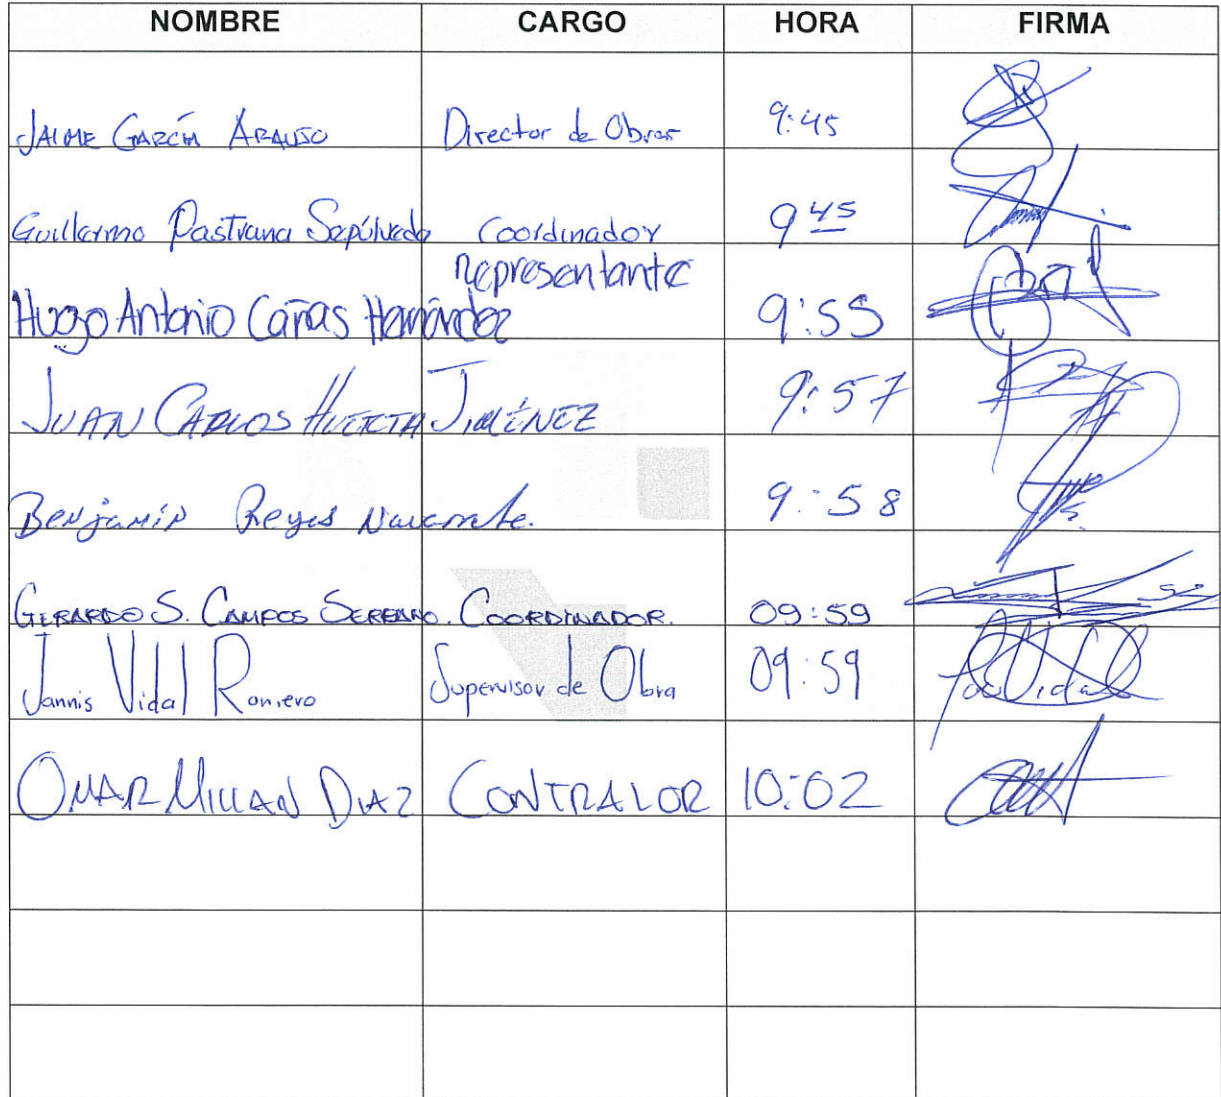 NOMBRE CARGO HORA FIRMA
JAIME GARCÍA ARAUJO Director de Obras 9:45
Guillermo Pastrana Sepúlveda Coordinador 9 45
Representante
Hugo Antonio Cañas Hernández 9:55
JUAN CARLOS HUERTA JIMÉNEZ 9:57
Benjamin Reyes Navarrete. 9:58
GERARDO S. CAMPOS SERRANO. COORDINADOR. 09:59
Jannis Vidal Romero Supervisor de Obra 09:59
OMAR MILLAN DIAZ CONTRALOR 10:02